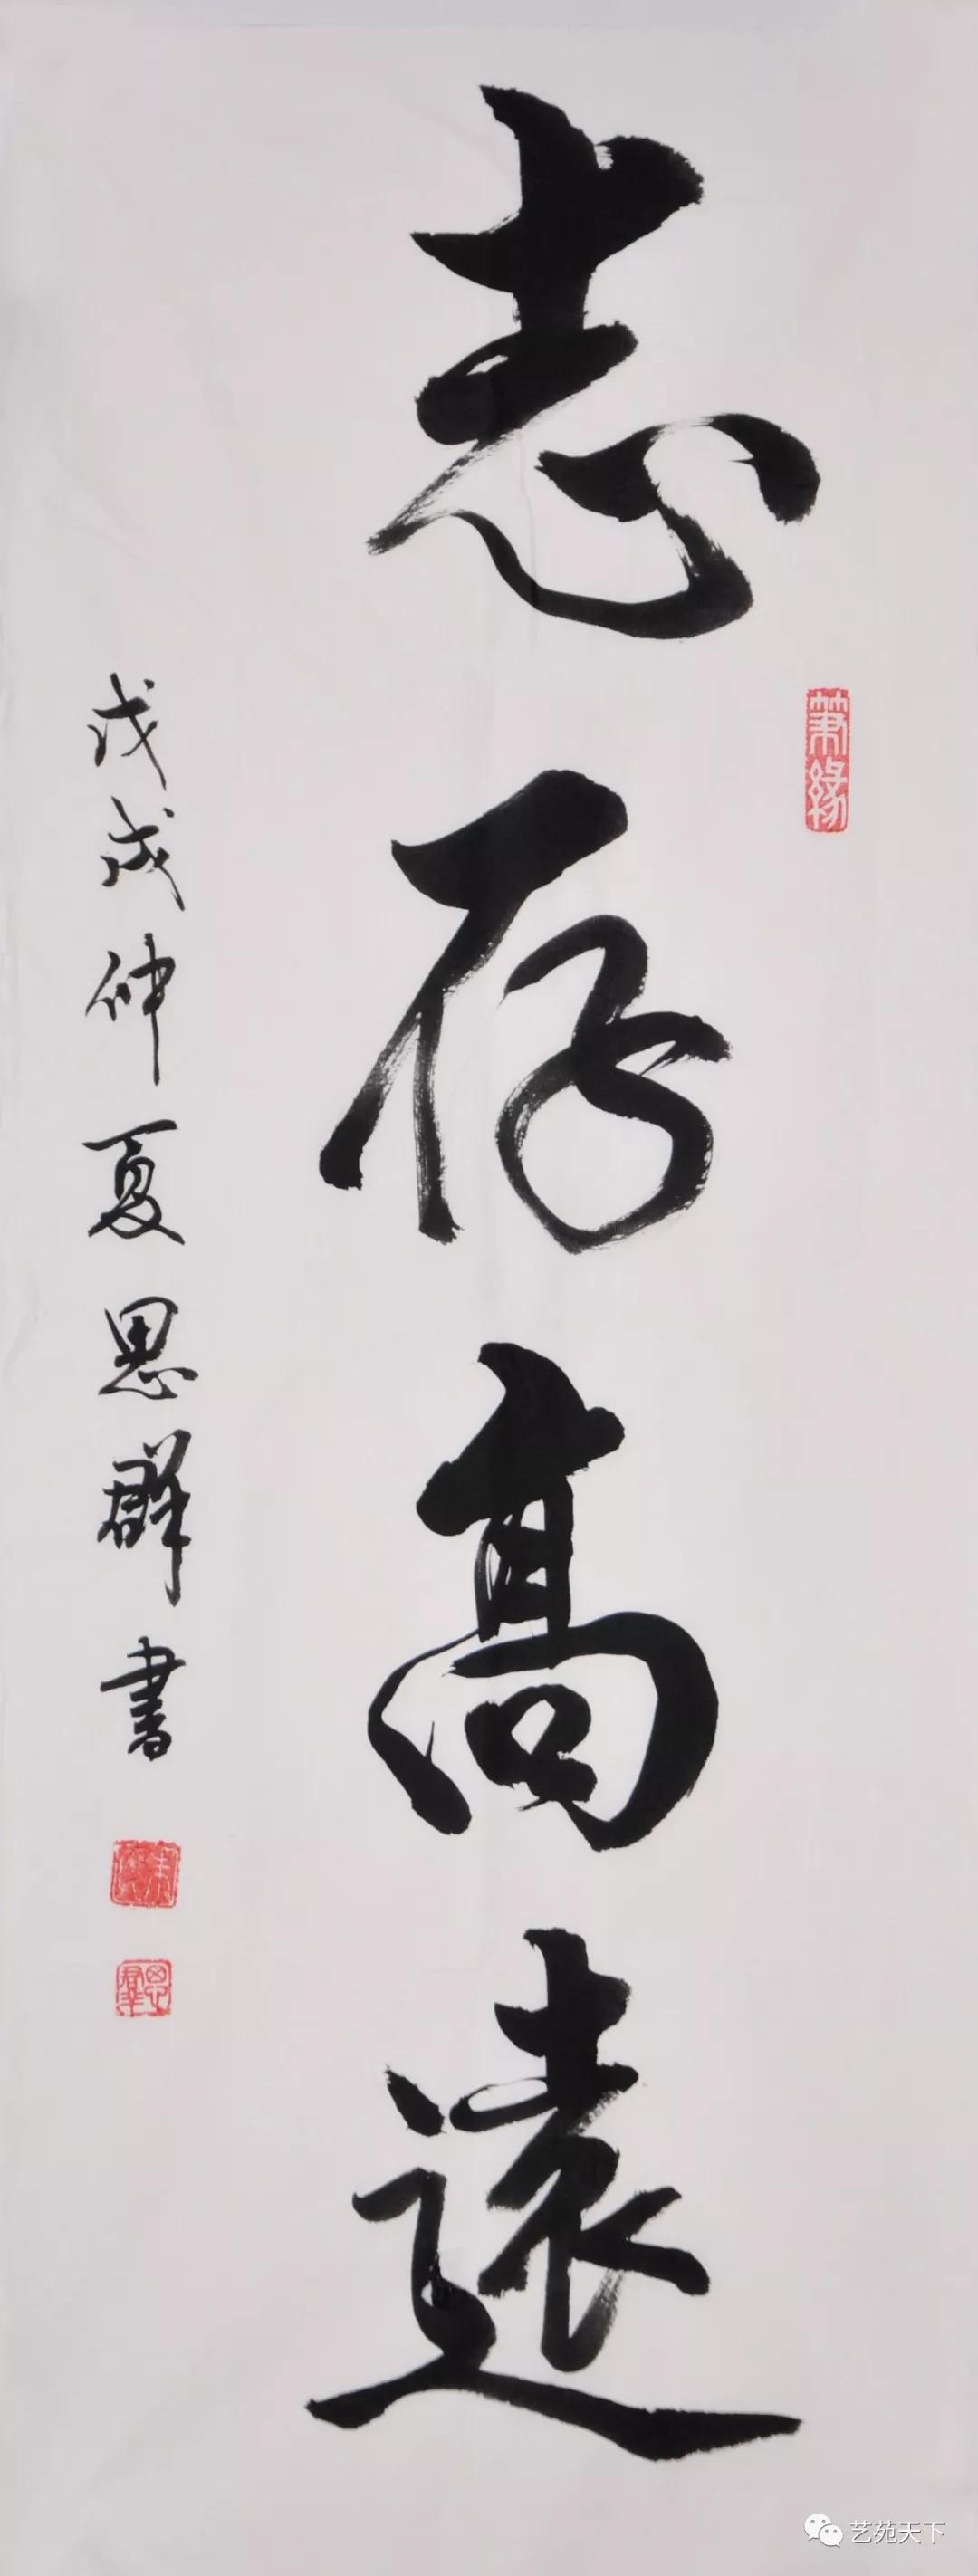 志存高遠
筆緣
戊戌仲夏思群書
思群
艺苑天下